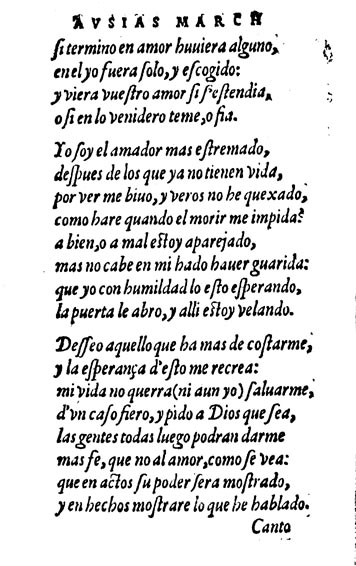 AVSIAS MARCH
si termino en amor huuiera alguno,
en el yo fuera solo, y escogido:
y viera vuestro amor si s'estendia,
o si en lo venidero teme, o fia.
Yo soy el amador mas estremado,
despues de los que ya no tienen vida,
por ver me biuo, y veros no he quexado,
como hare quando el morir me impida?
a bien, o a mal estoy aparejado,
mas no cabe en mi hado hauer guarida:
que yo con humildad lo esto esperando,
la puerta le abro, y alli estoy velando.
Desseo aquello que ha mas de costarme,
y la esperança d'esto me recrea:
mi vida no querra (ni aun yo) saluarme,
d'vn caso fiero, y pido a Dios que sea,
las gentes todas luego podran darme
mas fe, que no al amor, como se vea:
que en actos su poder sera mostrado,
y en hechos mostrare lo que he hablado.
Canto